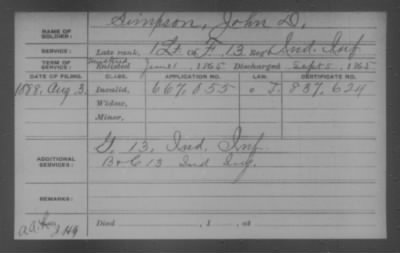 NAME OF SOLDIER: Simpson, John D.
SERVICE: Late rank, 1 Lt Co F, 13 Reg't Ind. Inf.
TERM OF SERVICE: Mustered Enlisted June 1, 1865 Discharged Sept 5, 1865
DATE OF FILING. CLASS. APPLICATION NO. LAW. CERTIFICATE NO.
1888, Aug 3, Invalid, 667,055 J. 837,624
Widow,
Minor,
ADDITIONAL SERVICES: G, 13, Ind. Inf.
B & C 13 Ind Inf.
REMARKS:
Died , 1 , at